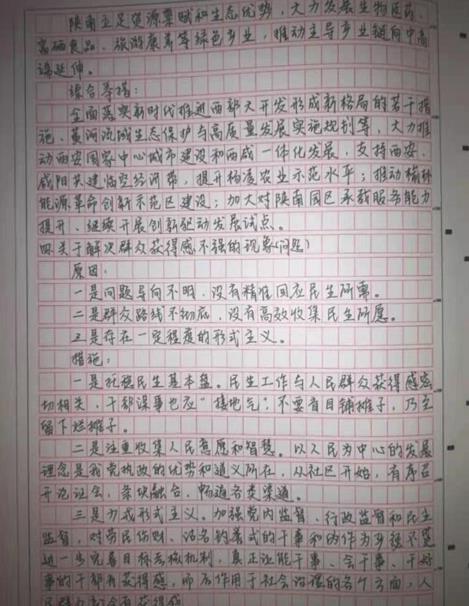 陕南立足资源禀赋和生态优势，大力发展生物医药、
富硒食品、旅游康养等绿色产业，推动主导产业链向中高
端延伸。
综合举措：
全面落实新时代推进西部大开发形成新格局的若干措
施、黄河流域生态保护与高质量发展实施规划等，大力推
动西安国家中心城市建设和西咸一体化发展，支持西安、
咸阳共建临空经济带，提升杨凌农业示范水平；推动榆林
能源革命创新示范区建设；加大对陕南园区承载服务能力
提升、继续开展创新驱动发展试点。
四、关于解决群众获得感不强的现象(问题)
原因：
一是问题导向不明，没有精准回应民生所需。
二是群众路线不彻底，没有高效收集民生所愿。
三是存在一定程度的形式主义。
措施：
一是托稳民生基本盘。民生工作与人民群众获得感密
切相关，干部谋事也应“接地气”，不要盲目铺摊子，乃至
留下烂摊子。
二是注重收集人民意愿和智慧。以人民为中心的发展
理念是我党执政的优势和道义所在，从社区开始，有序召
开论证会，条块融合，畅通各类渠道。
三是力戒形式主义。加强党内监督、行政监督和民主
监督，对劳民伤财、沽名钓誉式的干事和的作为予以不
进一步完善目标考核机制，真正让能干事、会干事、干好
事的干部有获得感，而后作用于社会治理的各个方面，人
民群众